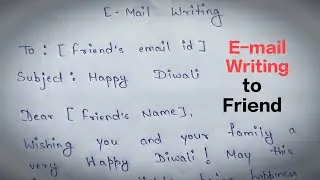 E-Mail Writing
To : [ friend's email id ]
Subject : Happy Diwali
Dear [ Friend's Name ],
Wishing you and your family a
very Happy Diwali! May this
bring happiness
E-mail
Writing
to
Friend